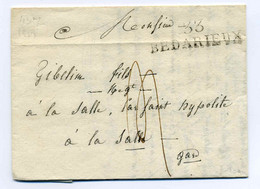 Monsieur
33
BEDARIEUX
Gibelin fils
Negt
à la Salle, l'enfant hypolite
à la Salle
Gard